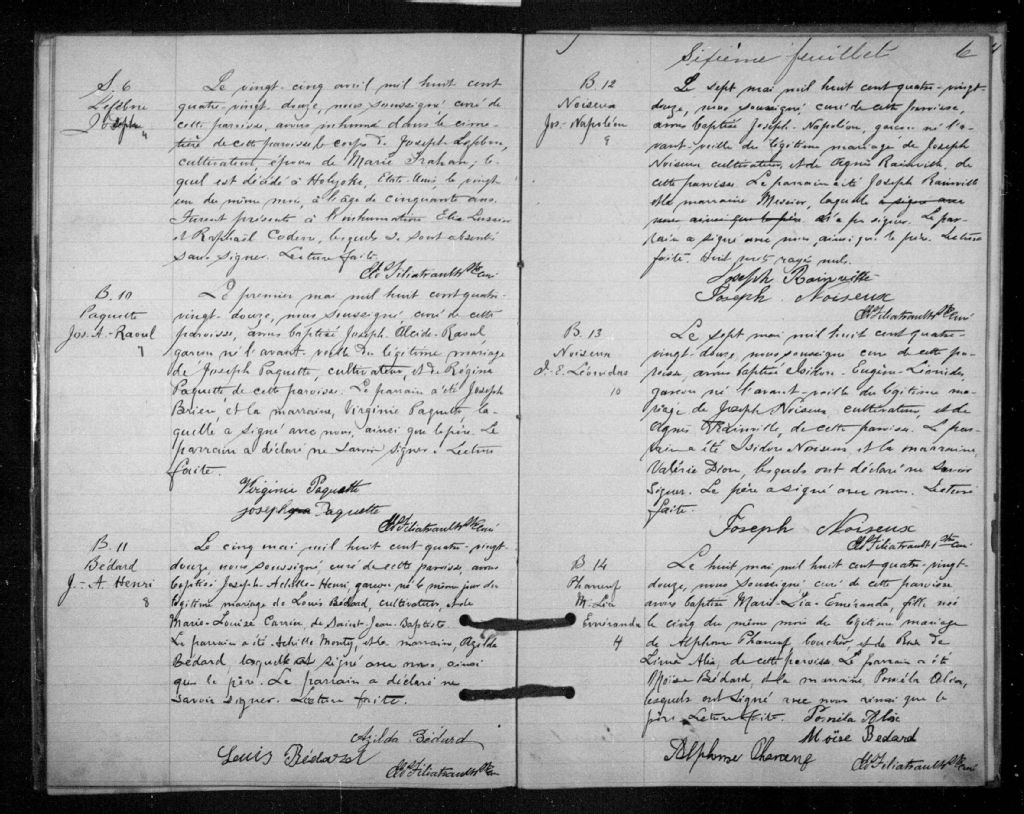 S. 6
Lefebvre
Joseph
Le vingt-cinq avril mil huit cent
quatre-vingt-douze, nous soussigné curé de
cette paroisse, avons inhumé dans le cime-
tière de cette paroisse le corps de Joseph Lefebvre,
cultivateur époux de Marie Trahan, le-
quel est décédé à Holyoke, Etats-Unis, le vingt
un du même mois, à l'âge de cinquante ans.
Furent présents à l'inhumation Elie Lussier
et Raphaël Coderre, lesquels se sont absentés
sans signer. Lecture faite.
Filiatrault Ptre curé
B. 10
Paquette
Jos. A.-Raoul
7
Le premier mai mil huit cent quatre-
vingt-douze, nous soussigné, curé de cette
paroisse, avons baptisé Joseph-Alcide-Raoul,
garçon né l'avant-veille du légitime mariage
de Joseph Paquette, cultivateur, et de Régina
Paquette de cette paroisse. Le parrain a été Joseph
Brien, et la marraine, Virginie Paquette, la-
quelle a signé avec nous, ainsi que le père. Le
parrain a déclaré ne savoir signer. Lecture
faite.
Virginie Paquette
joseph Paquette
Filiatrault Ptre curé
B. 11
Bédard
J.-A. Henri
8
Le cinq mai mil huit cent quatre-vingt-
douze, nous soussigné curé de cette paroisse, avons
baptisé Joseph-Achille-Henri, garçon, né le même jour du
légitime mariage de Louis Bédard, cultivateur, et de
Marie-Louise Carrier, de Saint-Jean-Baptiste.
Le parrain a été Achille Monty, et la marraine, Azilda
Bédard, laquelle a signé avec nous, ainsi
que le père. Le parrain a déclaré ne
savoir signer. Lecture faite.
Azilda Bédard
Louis Bédard
Filiatrault Ptre curé
Sixième feuillet
6
B. 12
Noiseux
Jos.-Napoléon
9
Le sept mai mil huit cent quatre-vingt-
douze, nous soussigné curé de cette paroisse,
avons baptisé Joseph-Napoléon, garçon né l'a-
vant-veille du légitime mariage de Joseph
Noiseux cultivateur, et de Agnès Rainville, de
cette paroisse. Le parrain a été Joseph Rainville
et la marraine laquelle a signé avec
nous ainsi que le père n'a pu signer. Le par-
rain a signé avec nous, ainsi que le père. Lecture
faite. Huit mots rayés nuls.
Joseph Rainville
Joseph Noiseux
Filiatrault Ptre curé
B. 13
Noiseux
J. E. Léonidas
10
Le sept mai mil huit cent quatre-
vingt-douze, nous soussigné curé de cette pa-
roisse, avons baptisé Isidore-Eugène-Léonidas
garçon né l'avant-veille du légitime ma-
riage de Joseph Noiseux cultivateur, et de
Agnès Rainville, de cette paroisse. Le par-
rain a été Isidore Noiseux et la marraine,
Valérie Dion, lesquels ont déclaré ne savoir
signer. Le père a signé avec nous. Lecture
faite.
Joseph Noiseux
Filiatrault Ptre curé
B 14
Phaneuf
M. Lia
Eméranda
4
Le huit mai mil huit cent quatre-vingt-
douze, nous soussigné curé de cette paroisse
avons baptisé Marie-Lia-Eméranda, fille née
le cinq du même mois du légitime mariage
de Alphonse Phaneuf boucher, et de Rose de
Lima Alix, de cette paroisse. Le parrain a été
Moïse Bédard, et la marraine, Poméla Alix,
lesquels ont signé avec nous ainsi que le
père. Lecture faite. Poméla Alix
Moïse Bedard
Alphonse Phaneuf
Filiatrault Ptre curé